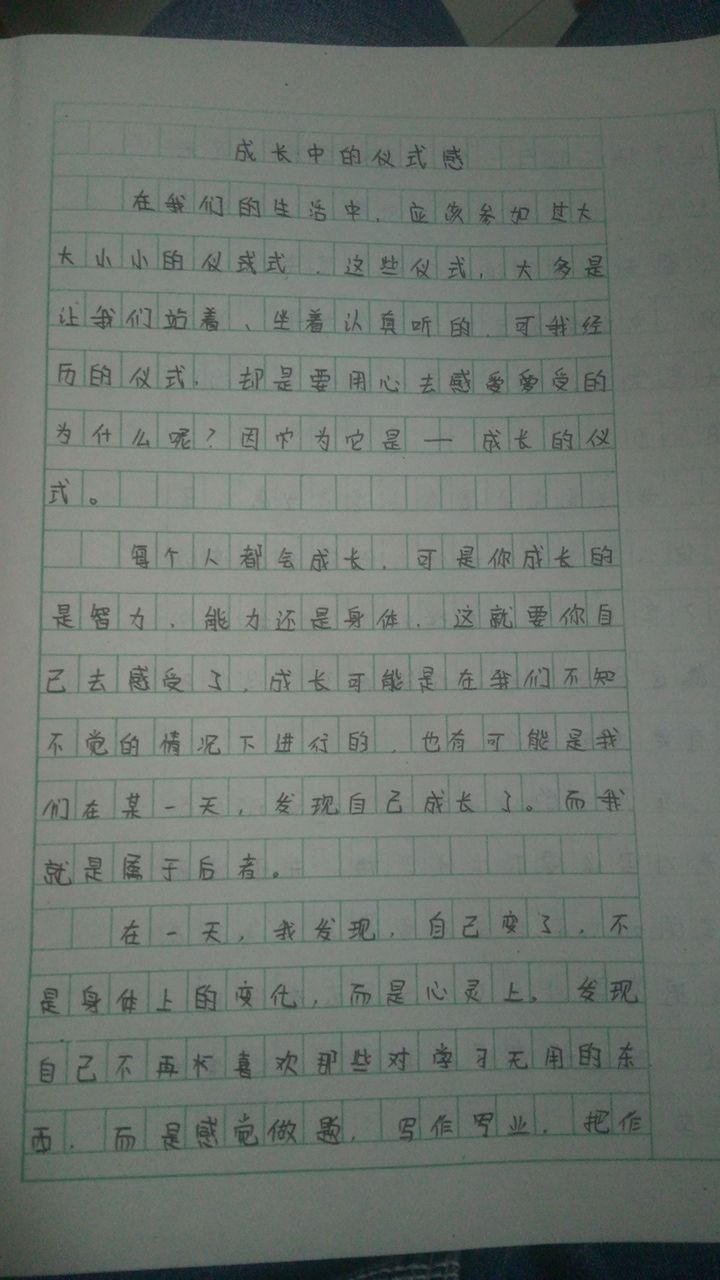 成长中的仪式感
在我们的生活中，应该参加过大
大小小的仪式式，这些仪式，大多是
让我们站着、坐着认真听的，可我经
历的仪式，却是要用心去感爱爱受的
为什么呢？因为它是一成长的仪
式。
每个人都会成长，可是你成长的
是智力，能力还是身体，这就要你自
己去感受了，成长可能是在我们不知
不觉的情况下进行的，也有可能是我
们在某一天，发现自己成长了。而我
就是属于后者。
在一天，我发现，自己变了，不
是身体上的变化，而是心灵上。发现
自己不再喜欢那些对学习无用的东
西，而是感觉做题，写作写业，把作